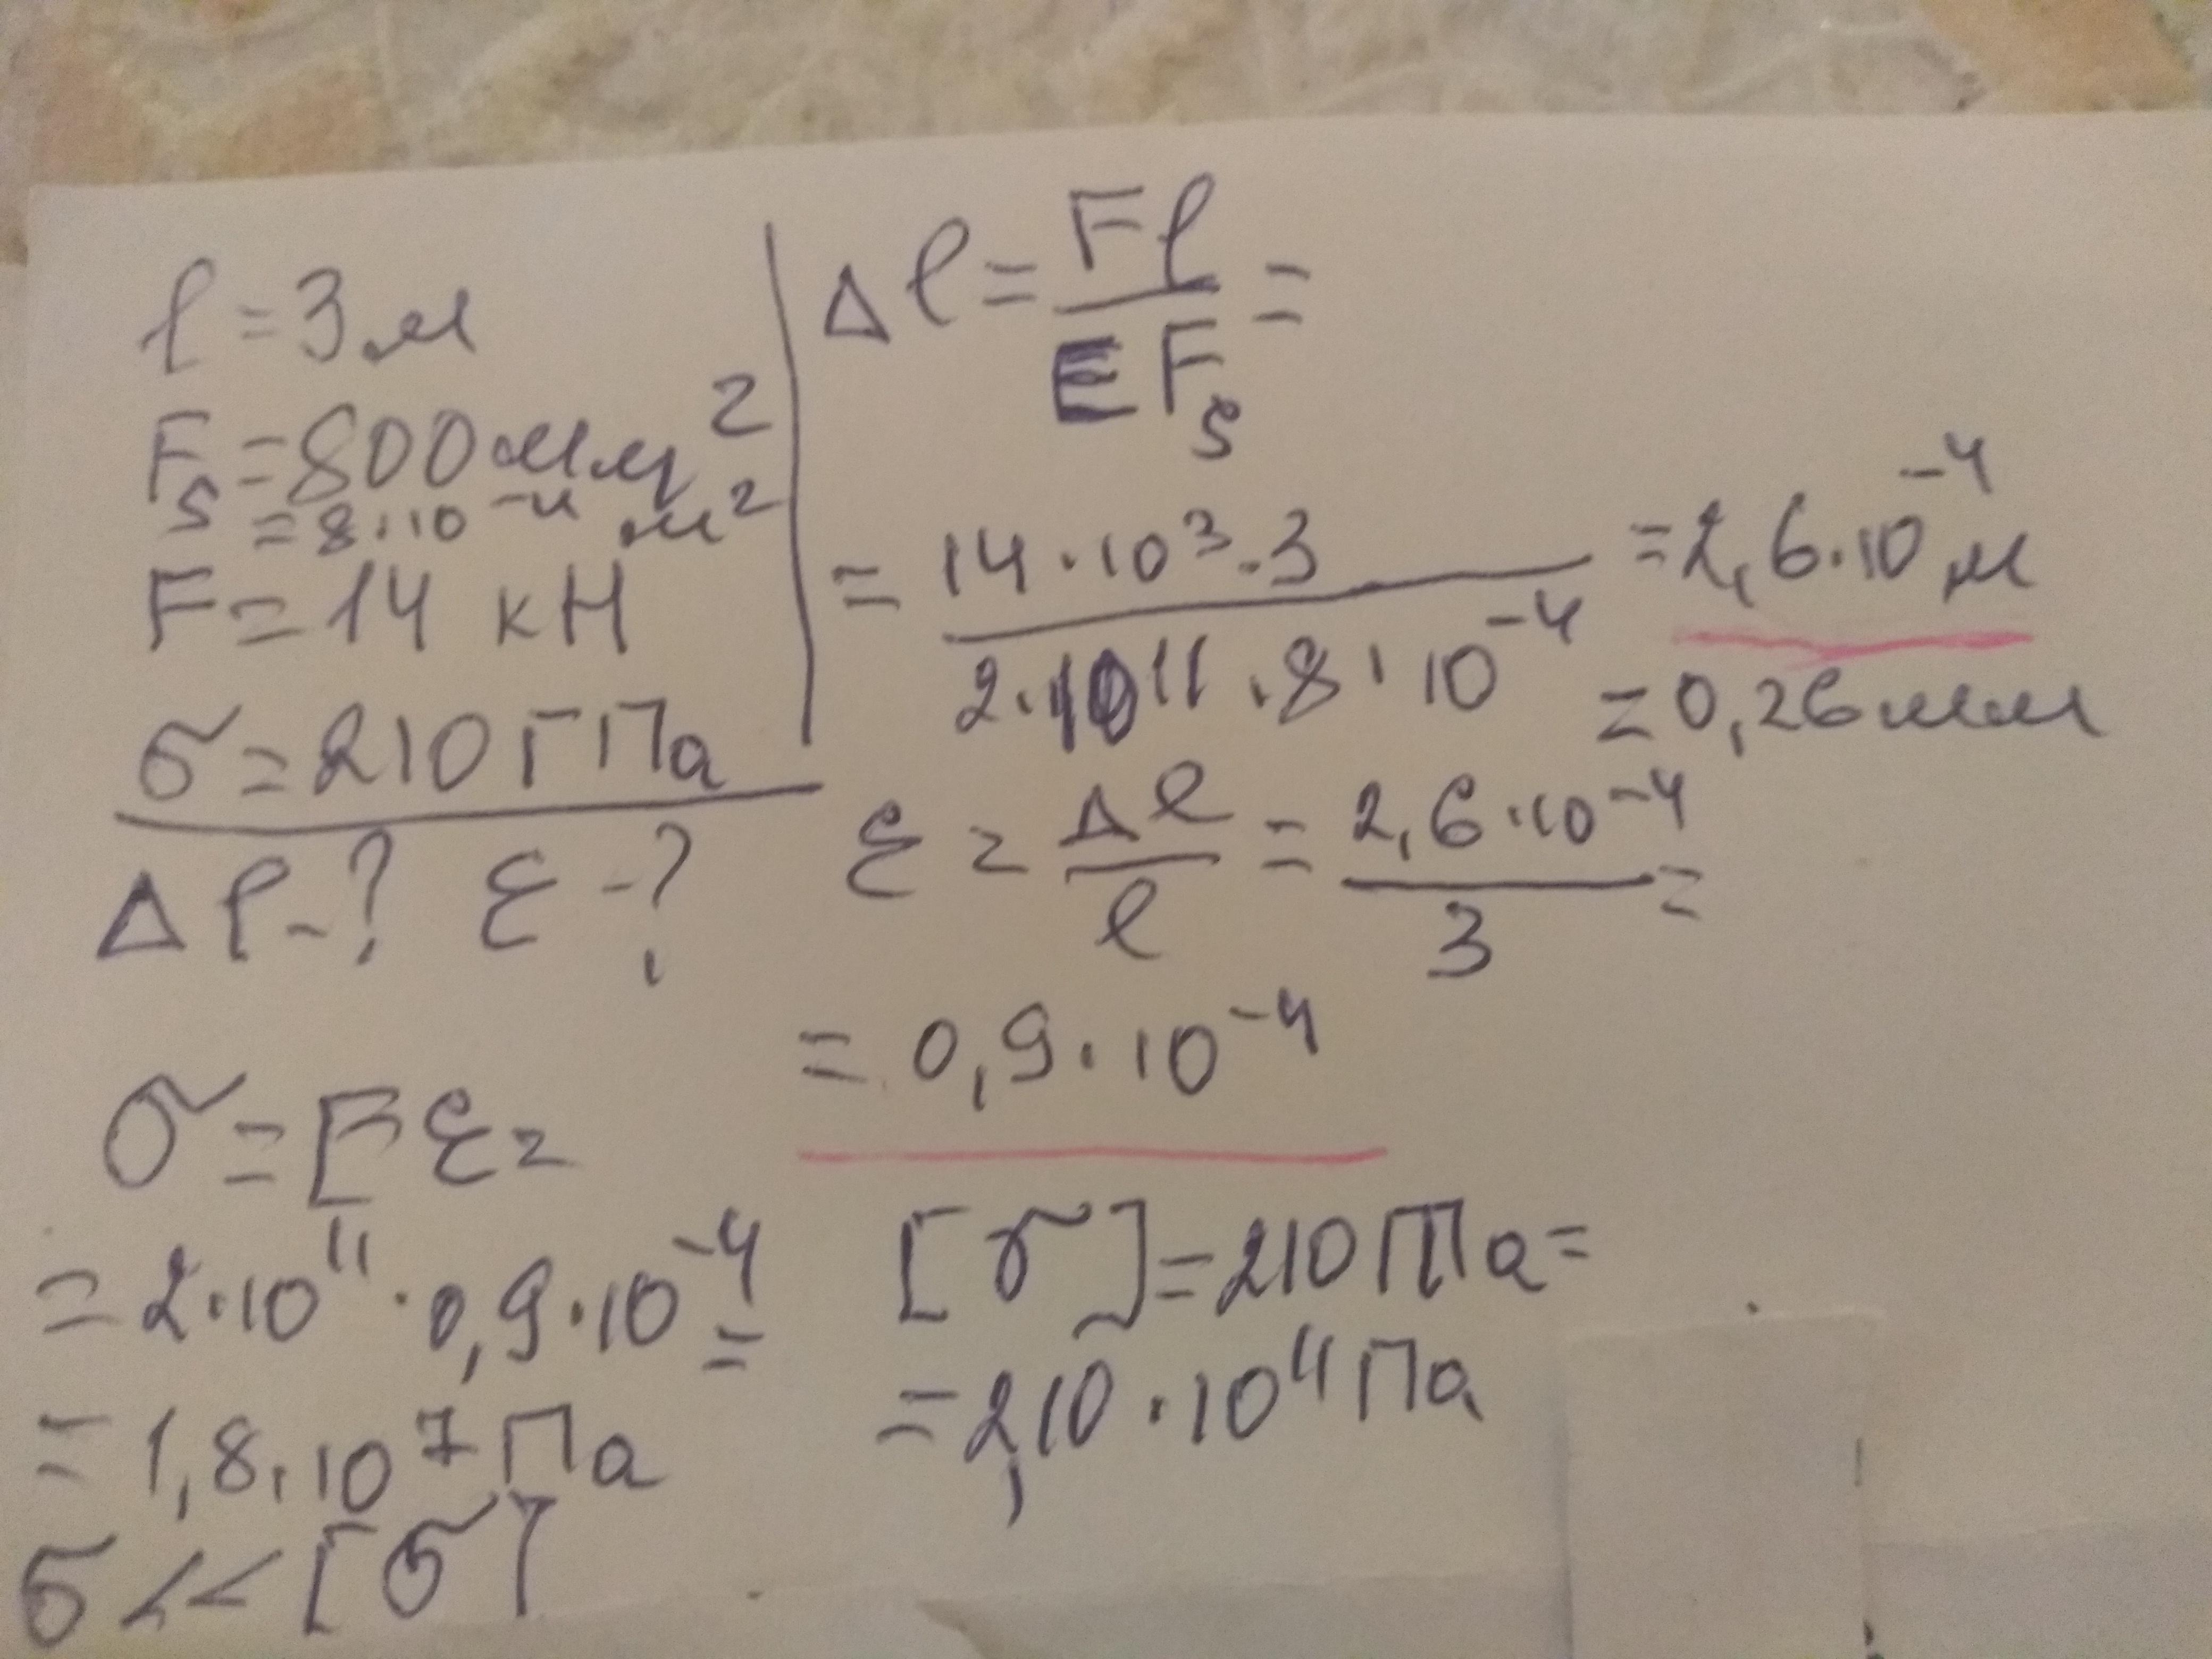 l = 3 м
Fs = 800 мм²
= 8·10⁻⁴ м²
F = 14 кН
σ = 210 ГПа
Δl - ? ε - ?
Δl = Fl / EFs =
= 14·10³·3 / 2·10¹¹·8·10⁻⁴ = 2,6·10⁻⁴ м
= 0,26 мм
ε = Δl / l = 2,6·10⁻⁴ / 3 =
= 0,9·10⁻⁴
σ = Eε =
= 2·10¹¹·0,9·10⁻⁴ =
= 1,8·10⁷ Па
σ << [σ]
[σ] = 210 ГПа =
= 2,10·10¹¹ Па